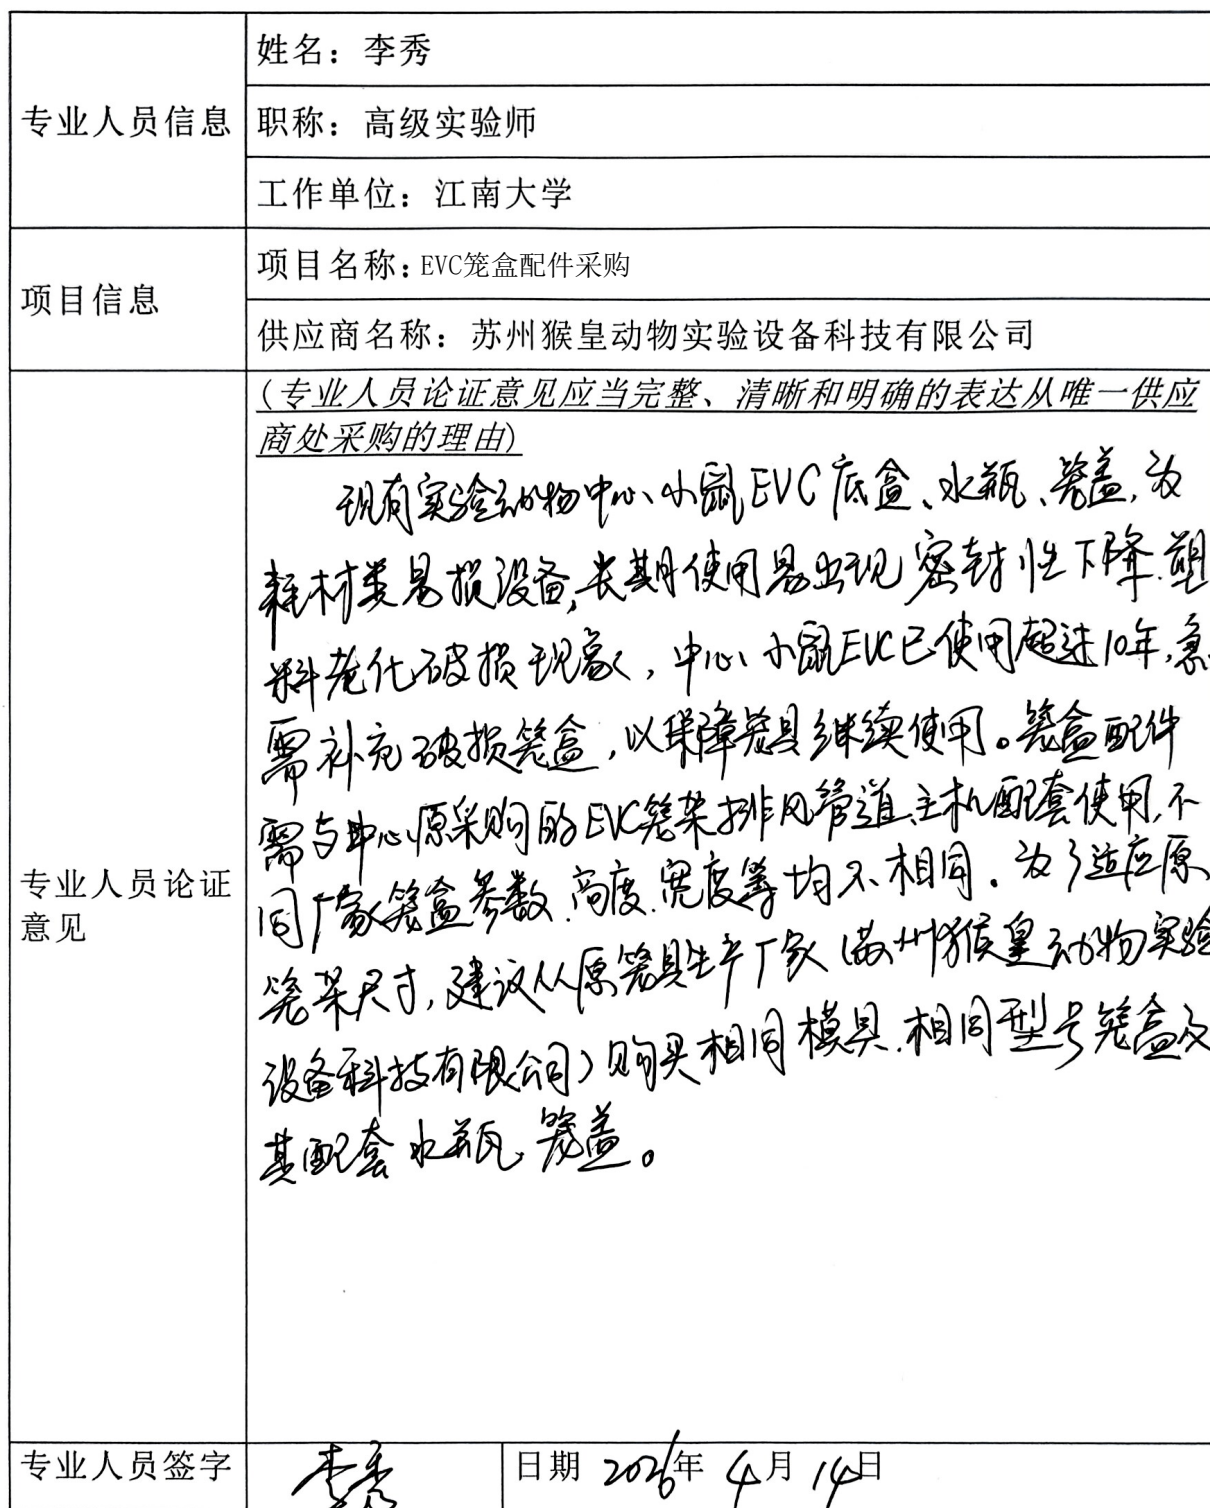 专业人员信息
姓名：李秀
职称：高级实验师
工作单位：江南大学
项目信息
项目名称：EVC笼盒配件采购
供应商名称：苏州猴皇动物实验设备科技有限公司
专业人员论证
意见
（专业人员论证意见应当完整、清晰和明确的表达从唯一供应
商处采购的理由）
现有实验动物中心小鼠EVC底盒、水瓶、笼盖，为
耗材类易损设备，长期使用易出现密封性下降、塑
料老化破损现象，中心小鼠EVC已使用超过10年，急
需补充破损笼盒，以保障笼具继续使用。笼盒配件
需与中心原采购的EVC笼架排风管道、主机配套使用，不
同厂家笼盒参数、高度、宽度等均不相同。为了适应原
笼架尺寸，建议从原笼具生产厂家（苏州猴皇动物实验
设备科技有限公司）购买相同模具、相同型号笼盒及
其配套水瓶、笼盖。
专业人员签字
李秀
日期 2026年 4月 14日